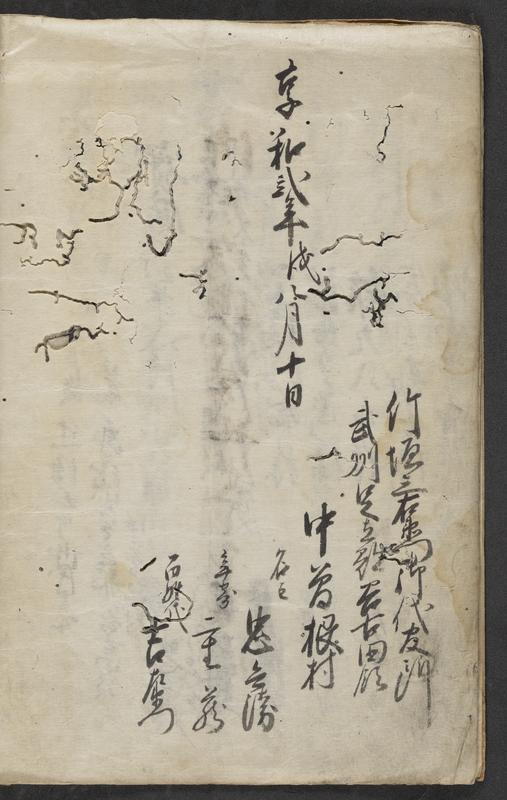 享和弐年戌八月十日
竹垣三右衛門御代官所
武州足立郡岩古田領
中曽根村
名主
忠兵衛
年寄
重蔵
百姓代
吉右衛門